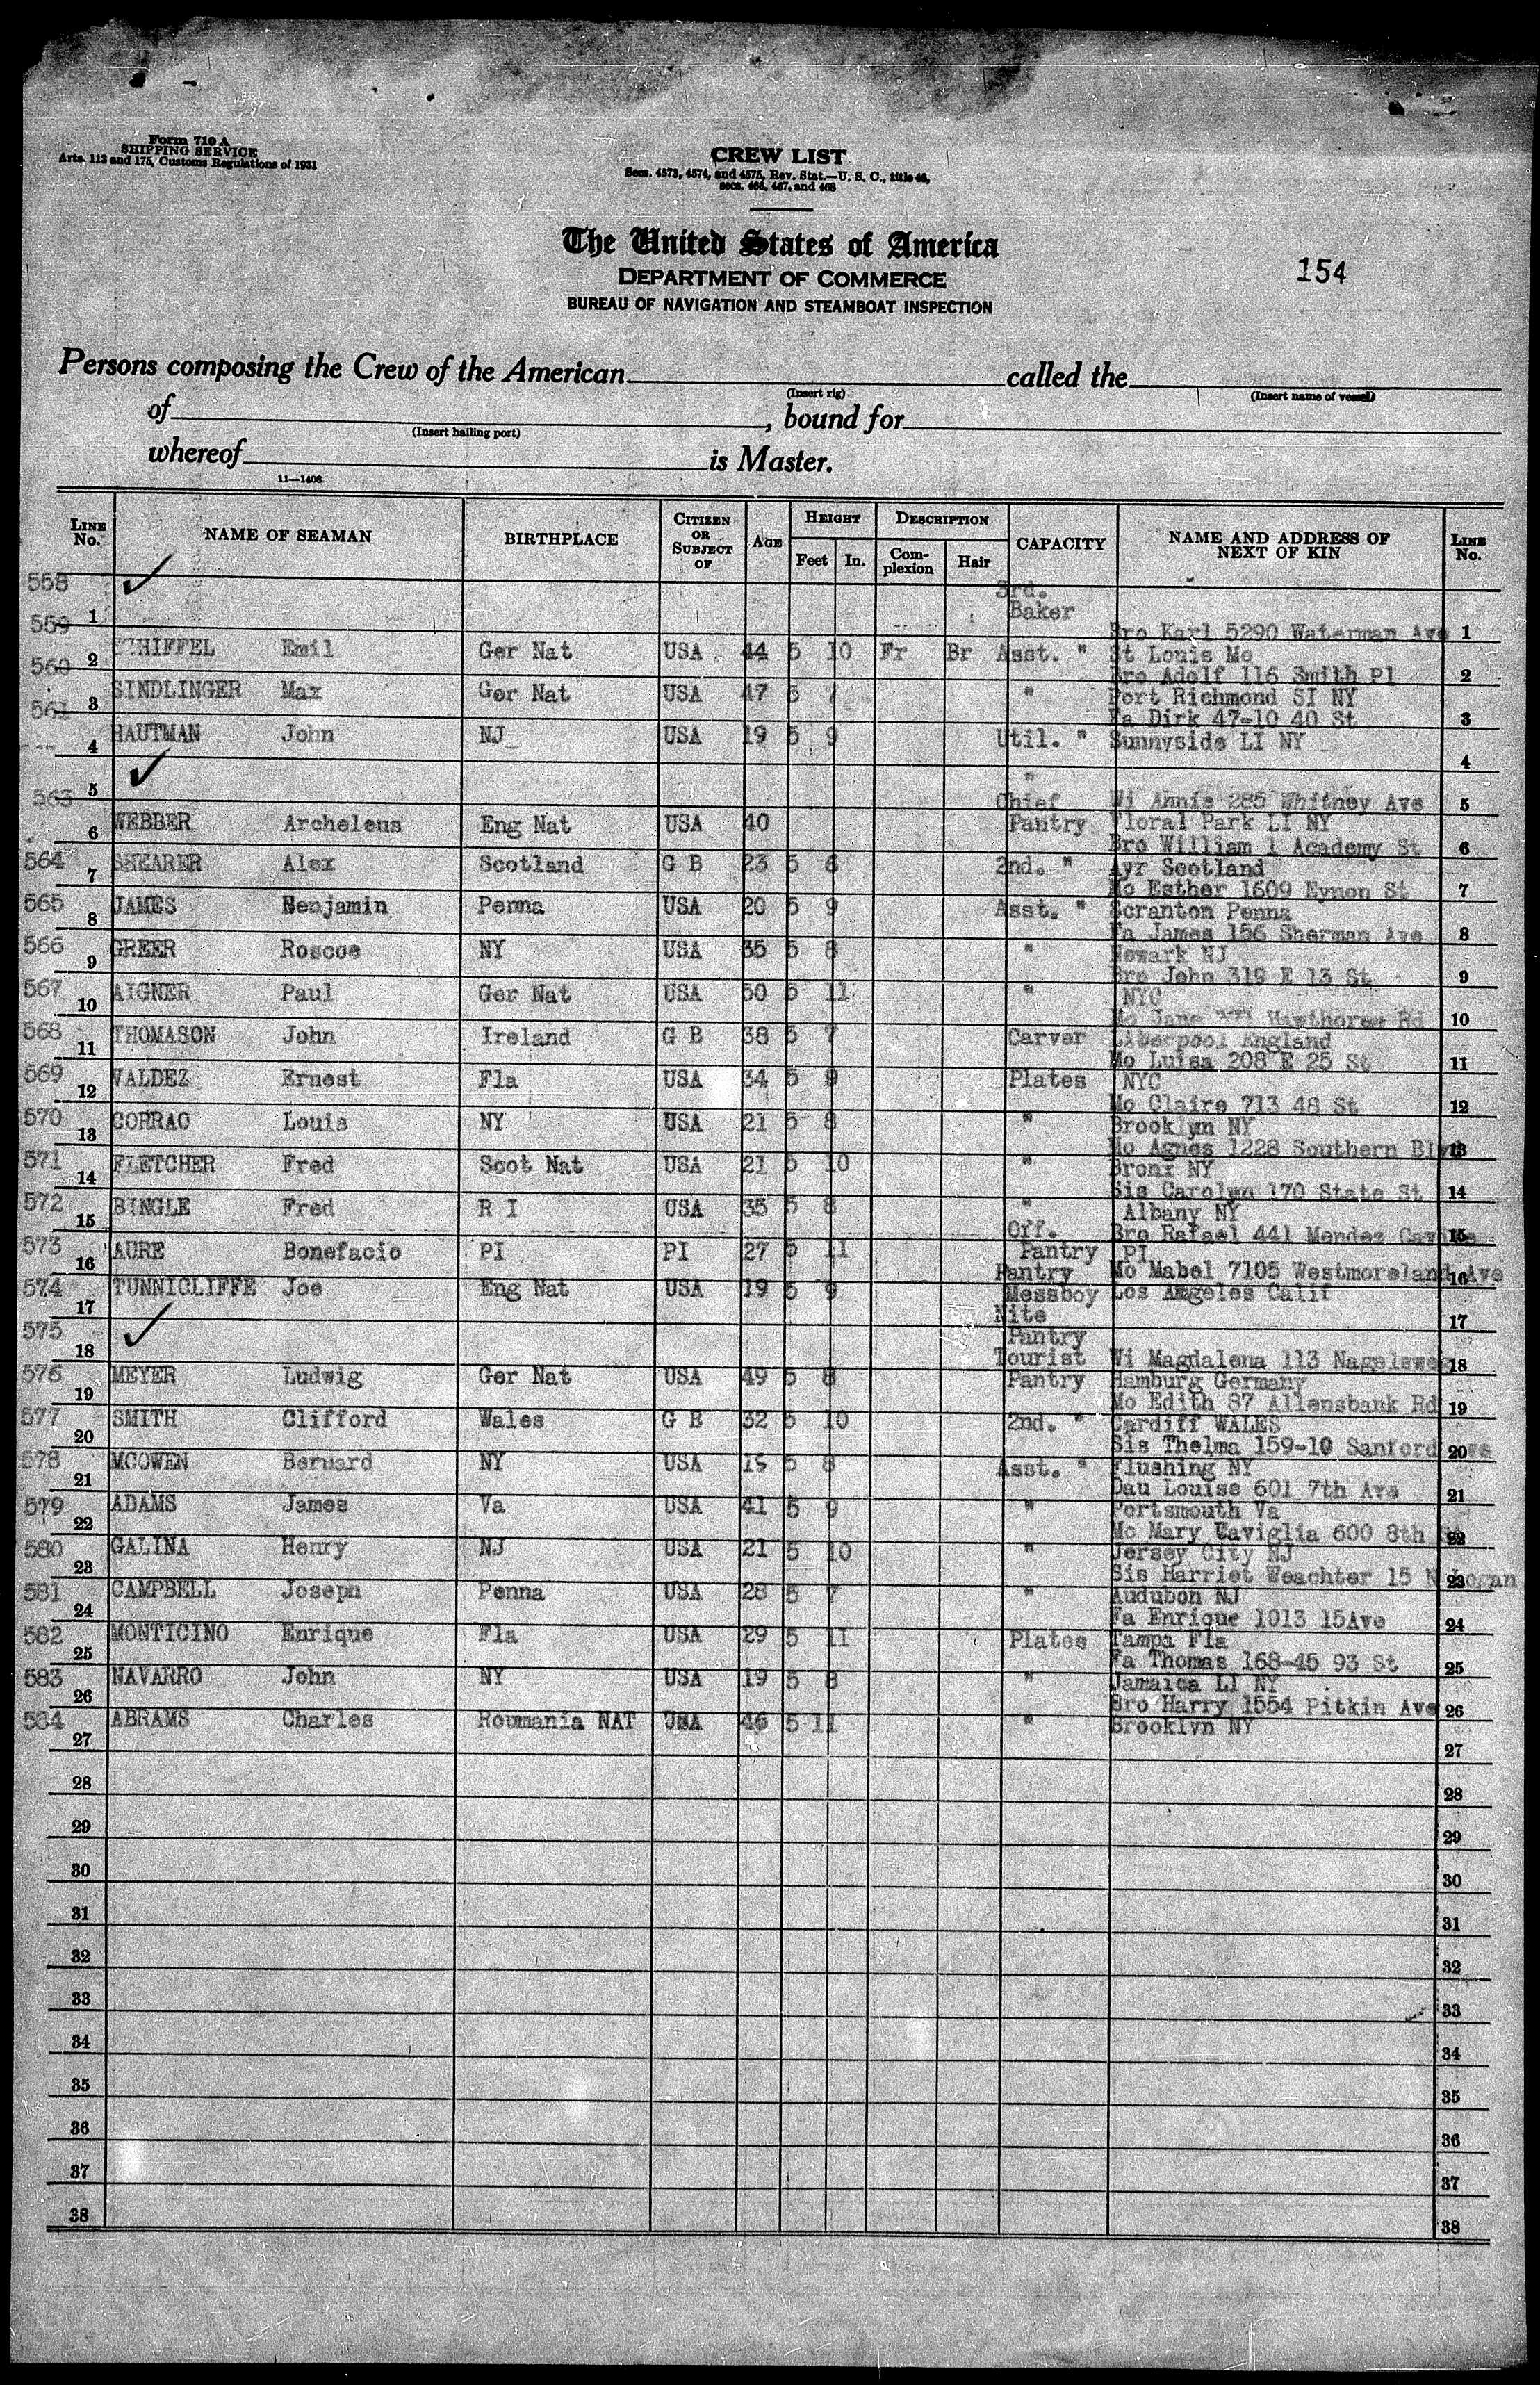 Form 710 A
SHIPPING SERVICE
Arts. 113 and 175, Customs Regulations of 1931
CREW LIST
Secs. 4573, 4574, and 4575, Rev. Stat.—U. S. C., title 46,
secs. 466, 467, and 468
The United States of America
DEPARTMENT OF COMMERCE
BUREAU OF NAVIGATION AND STEAMBOAT INSPECTION
154
Persons composing the Crew of the American called the
(Insert rig) (Insert name of vessel)
of , bound for
(Insert hailing port)
whereof is Master.
11—1408
LINE No. NAME OF SEAMAN BIRTHPLACE CITIZEN OR SUBJECT OF AGE HEIGHT Feet In. DESCRIPTION Complexion Hair CAPACITY NAME AND ADDRESS OF NEXT OF KIN LINE No.
558 1 ✓ 3rd. Baker 1
559 2 SCHIFFEL Emil Ger Nat USA 44 5 10 Fr Br Asst. " Bro Karl 5290 Waterman Ave St Louis Mo 2
560 3 SINDLINGER Max Ger Nat USA 47 5 7 " Bro Adolf 116 Smith Pl Port Richmond SI NY 3
561 4 HAUTMAN John NJ USA 19 5 9 Util. " Fa Dirk 47-10 40 St Sunnyside LI NY 4
5 ✓ " 5
563 6 WEBBER Archeleus Eng Nat USA 40 Chief Pantry Wi Annie 285 Whitney Ave Floral Park LI NY 6
564 7 SHEARER Alex Scotland G B 23 5 6 2nd. " Bro William 1 Academy St Ayr Scotland 7
565 8 JAMES Benjamin Penna USA 20 5 9 Asst. " Mo Esther 1609 Eynon St Scranton Penna 8
566 9 GREER Roscoe NY USA 35 5 8 " Fa James 156 Sherman Ave Newark NJ 9
567 10 AIGNER Paul Ger Nat USA 50 5 11 " Bro John 319 E 13 St NYC 10
568 11 THOMASON John Ireland G B 38 5 7 Carver Mo Jane Hawthorne Rd Liberpool England 11
569 12 VALDEZ Ernest Fla USA 34 5 9 Plates Mo Luisa 208 E 25 St NYC 12
570 13 CORRAO Louis NY USA 21 5 8 " Mo Claire 713 48 St Brooklyn NY 13
571 14 FLETCHER Fred Scot Nat USA 21 5 10 " Mo Agnes 1228 Southern Blvd Bronx NY 14
572 15 BINGLE Fred R I USA 35 5 8 " Sis Carolyn 170 State St Albany NY 15
573 16 AURE Bonefacio PI PI 27 5 11 Off. Pantry Bro Rafael 441 Mendez Cavite PI 16
574 17 TUNNICLIFFE Joe Eng Nat USA 19 5 9 Pantry Messboy Mo Mabel 7105 Westmoreland Ave Los Angeles Calif 17
575 18 ✓ Nite Pantry 18
576 19 MEYER Ludwig Ger Nat USA 49 5 8 Tourist Pantry Wi Magdalena 113 Hamburg Germany 19
577 20 SMITH Clifford Wales G B 32 5 10 2nd. " Mo Edith 87 Allensbank Rd Cardiff WALES 20
578 21 MCOWEN Bernard NY USA 19 5 8 Asst. " Sis Thelma 159-10 Sanford Ave Flushing NY 21
579 22 ADAMS James Va USA 41 5 9 " Dau Louise 601 7th Ave Portsmouth Va 22
580 23 GALINA Henry NJ USA 21 5 10 " Mo Mary Caviglia 600 8th Jersey City NJ 23
581 24 CAMPBELL Joseph Penna USA 28 5 7 " Sis Harriet Weachter 15 N Audubon NJ 24
582 25 MONTICINO Enrique Fla USA 29 5 11 Plates Fa Enrique 1013 15Ave Tampa Fla 25
583 26 NAVARRO John NY USA 19 5 8 " Fa Thomas 168-45 93 St Jamaica LI NY 26
584 27 ABRAMS Charles Roumania NAT USA 46 5 11 " Bro Harry 1554 Pitkin Ave Brooklyn NY 27
28 28
29 29
30 30
31 31
32 32
33 33
34 34
35 35
36 36
37 37
38 38